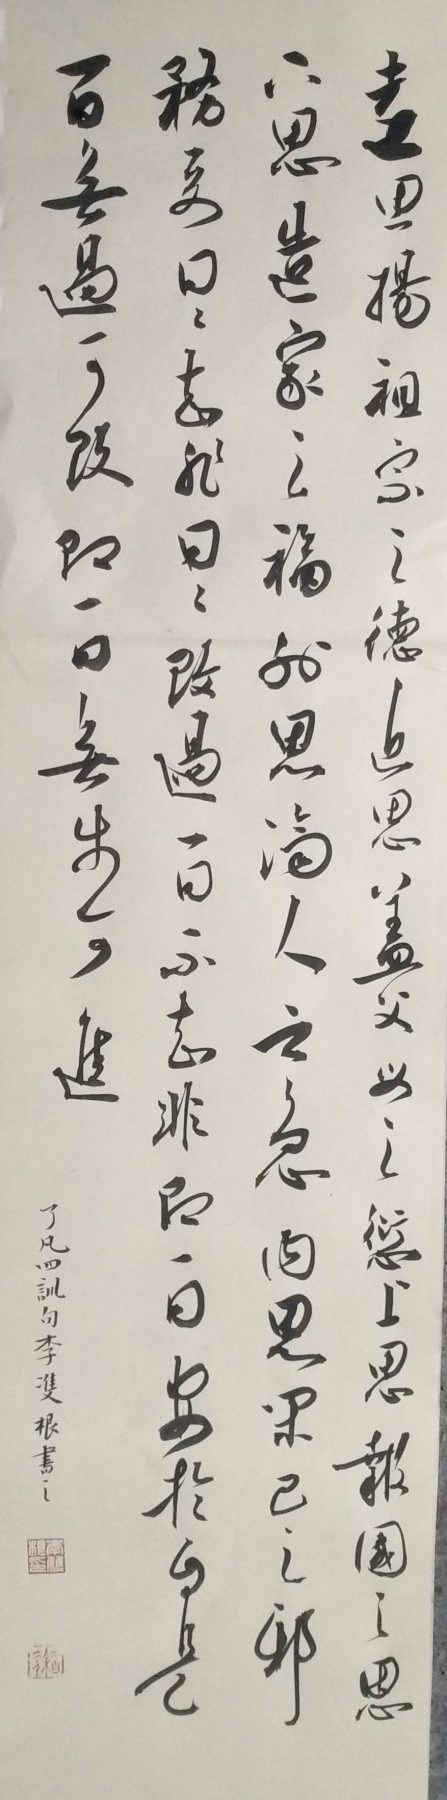 遠思揚祖宗之德近思蓋父母之愆上思報國之恩
下思造家之福外思濟人之急內思閑己之邪
務要日々知非日々改過一日不知非即一日安於自是
一日無過可改即一日無步可進
了凡四訓句李雙根書之